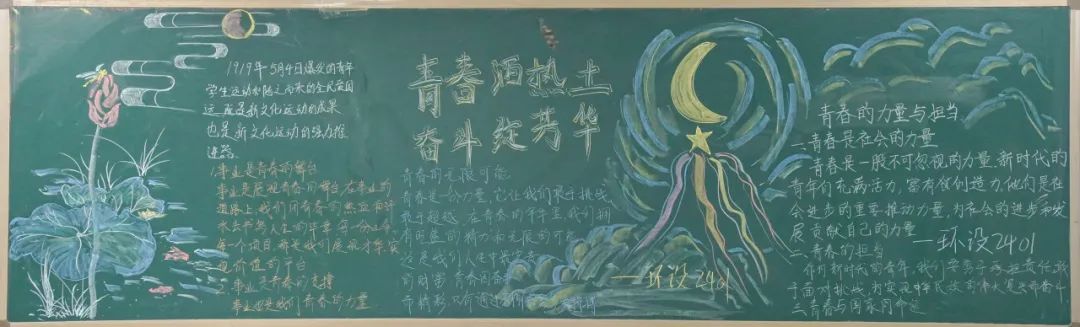 1919年5月4日爆发的青年
学生运动和随之而来的全民爱国
运动是新文化运动的成果
也是新文化运动的强力推
进器.
1.事业是青春的舞台
事业是展现青春的舞台,在事业的
道路上,我们用青春的热血和汗
水去书写人生的华章.每一份工作
每一个项目,都是我们展现才华,实
现价值的平台
2.事业是青春的支撑
事业也是我们青春的力量
青春洒热土
奋斗绽芳华
青春的无限可能
青春是一份力量,它让我们敢于挑战
敢于超越.在青春的年华里,我们拥
有旺盛的精力和无限的可能
这是我们人生中最宝贵
的财富
一环设2401
青春的力量与担当
一.青春是社会的力量
青春是一股不可忽视的力量.新时代的
青年们充满活力,富有创造力,他们是社
会进步的重要推动力量,为社会的进步和发
展贡献自己的力量
—环设2401
二.青春的担当
作为新时代的青年,我们要勇于承担责任,敢
于面对挑战,为实现中华民族的伟大复兴而奋斗
三.青春与国家同命运